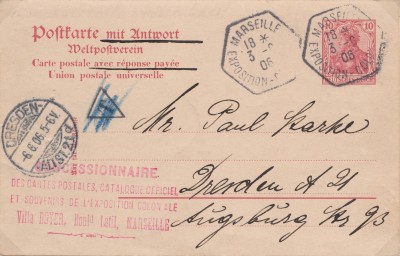 Postkarte mit Antwort
Weltpostverein
Carte postale avec réponse payée
Union postale universelle
MARSEILLE
18 *
3 - 6
06
EXPOSITION-
MARSEILLE
18 *
3
06
EXPOSITION
10
T
DRESDEN-
6.6.06.5-6V.
ALTST.24
Mr. Paul Starke
Dresden A 21
Augsburg Str 93
CONCESSIONNAIRE
DES CARTES POSTALES, CATALOGUE OFFICIEL
ET SOUVENIRS DE L'EXPOSITION COLONIALE
Villa ROYER, Boulᵈ Latil, MARSEILLE